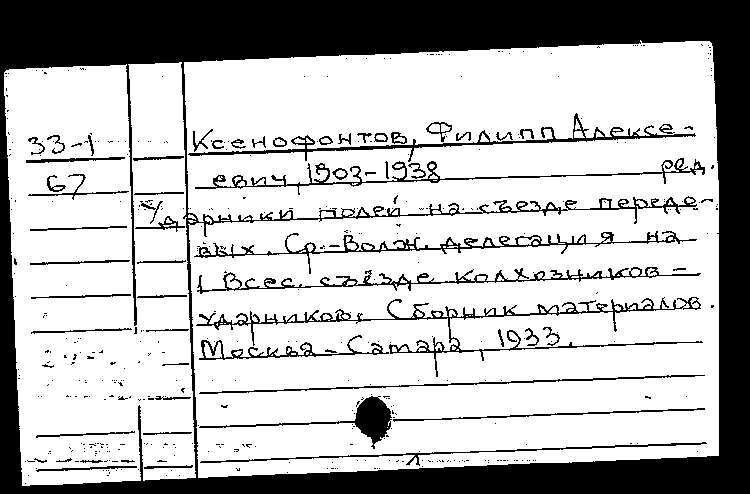 33-1
67
Ксенофонтов, Филипп Алексе-
евич, 1903-1938 ред.
Ударники полей на съезде передо-
вых. Ср.-Волж. делегация на
1 Всес. съезде колхозников-
ударников. Сборник материалов.
Москва-Самара, 1933.